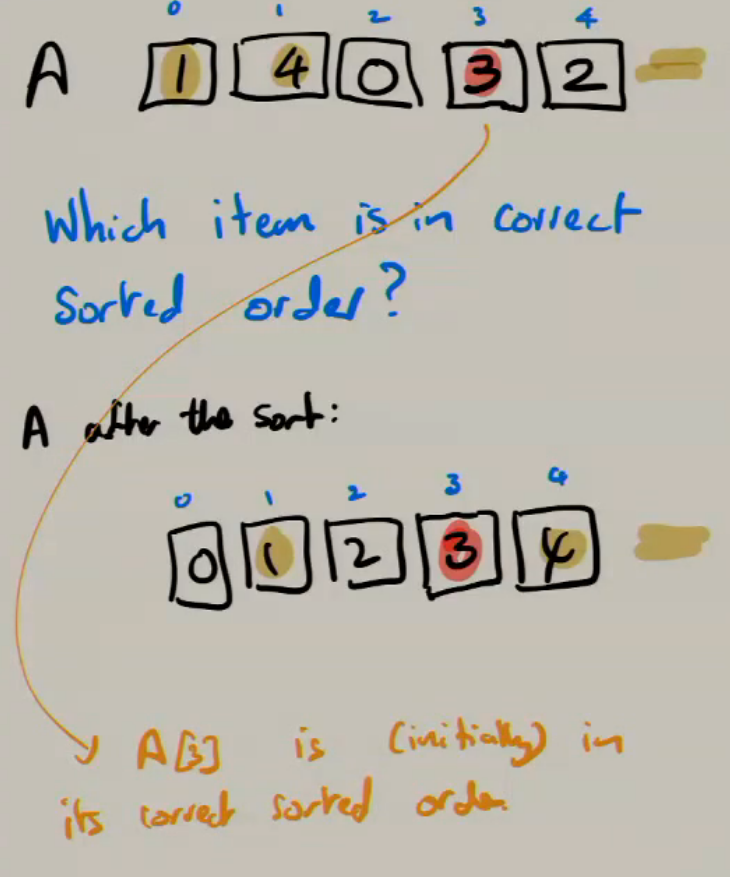 0 1 2 3 4
A 1 4 0 3 2
Which item is in correct
sorted order?
A after the sort:
0 1 2 3 4
0 1 2 3 4
A[3] is (initially) in
its correct sorted order.